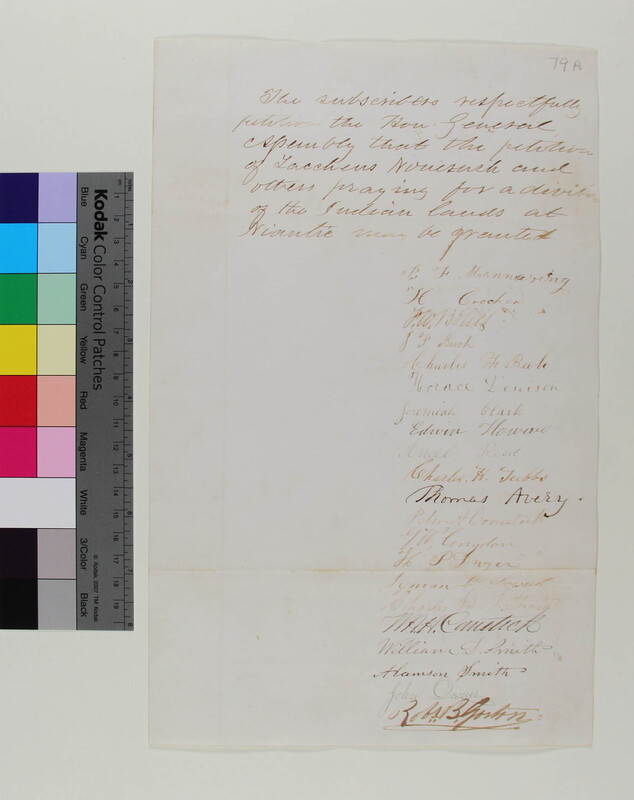 79A
The subscribers respectfully
petition the Hon General
Assembly that the petition
of Zaccheus Nonesuch and
others praying for a
of the Indian lands at
Niantic may be granted
F Mannaring
H Crocker
J P Beck
Charles F. Beck
Horace Denison
Jeremiah Clark
Edwin Howard
Charles H. Tubbs
Thomas Avery.
Peter A Comstock
Congdon
Lyman
Charles
Comstock
William S. Smith
Alanson Smith
John Davis
Robt. B. Gorton
Kodak Color Control Patches
Blue
Cyan
Green
Yellow
Red
Magenta
White
3/Color
Black
© Kodak, 2007 TM: Kodak
1 2 3 4 5 6 7 8 9 10 11 12 13 14 15 16 17 18 19